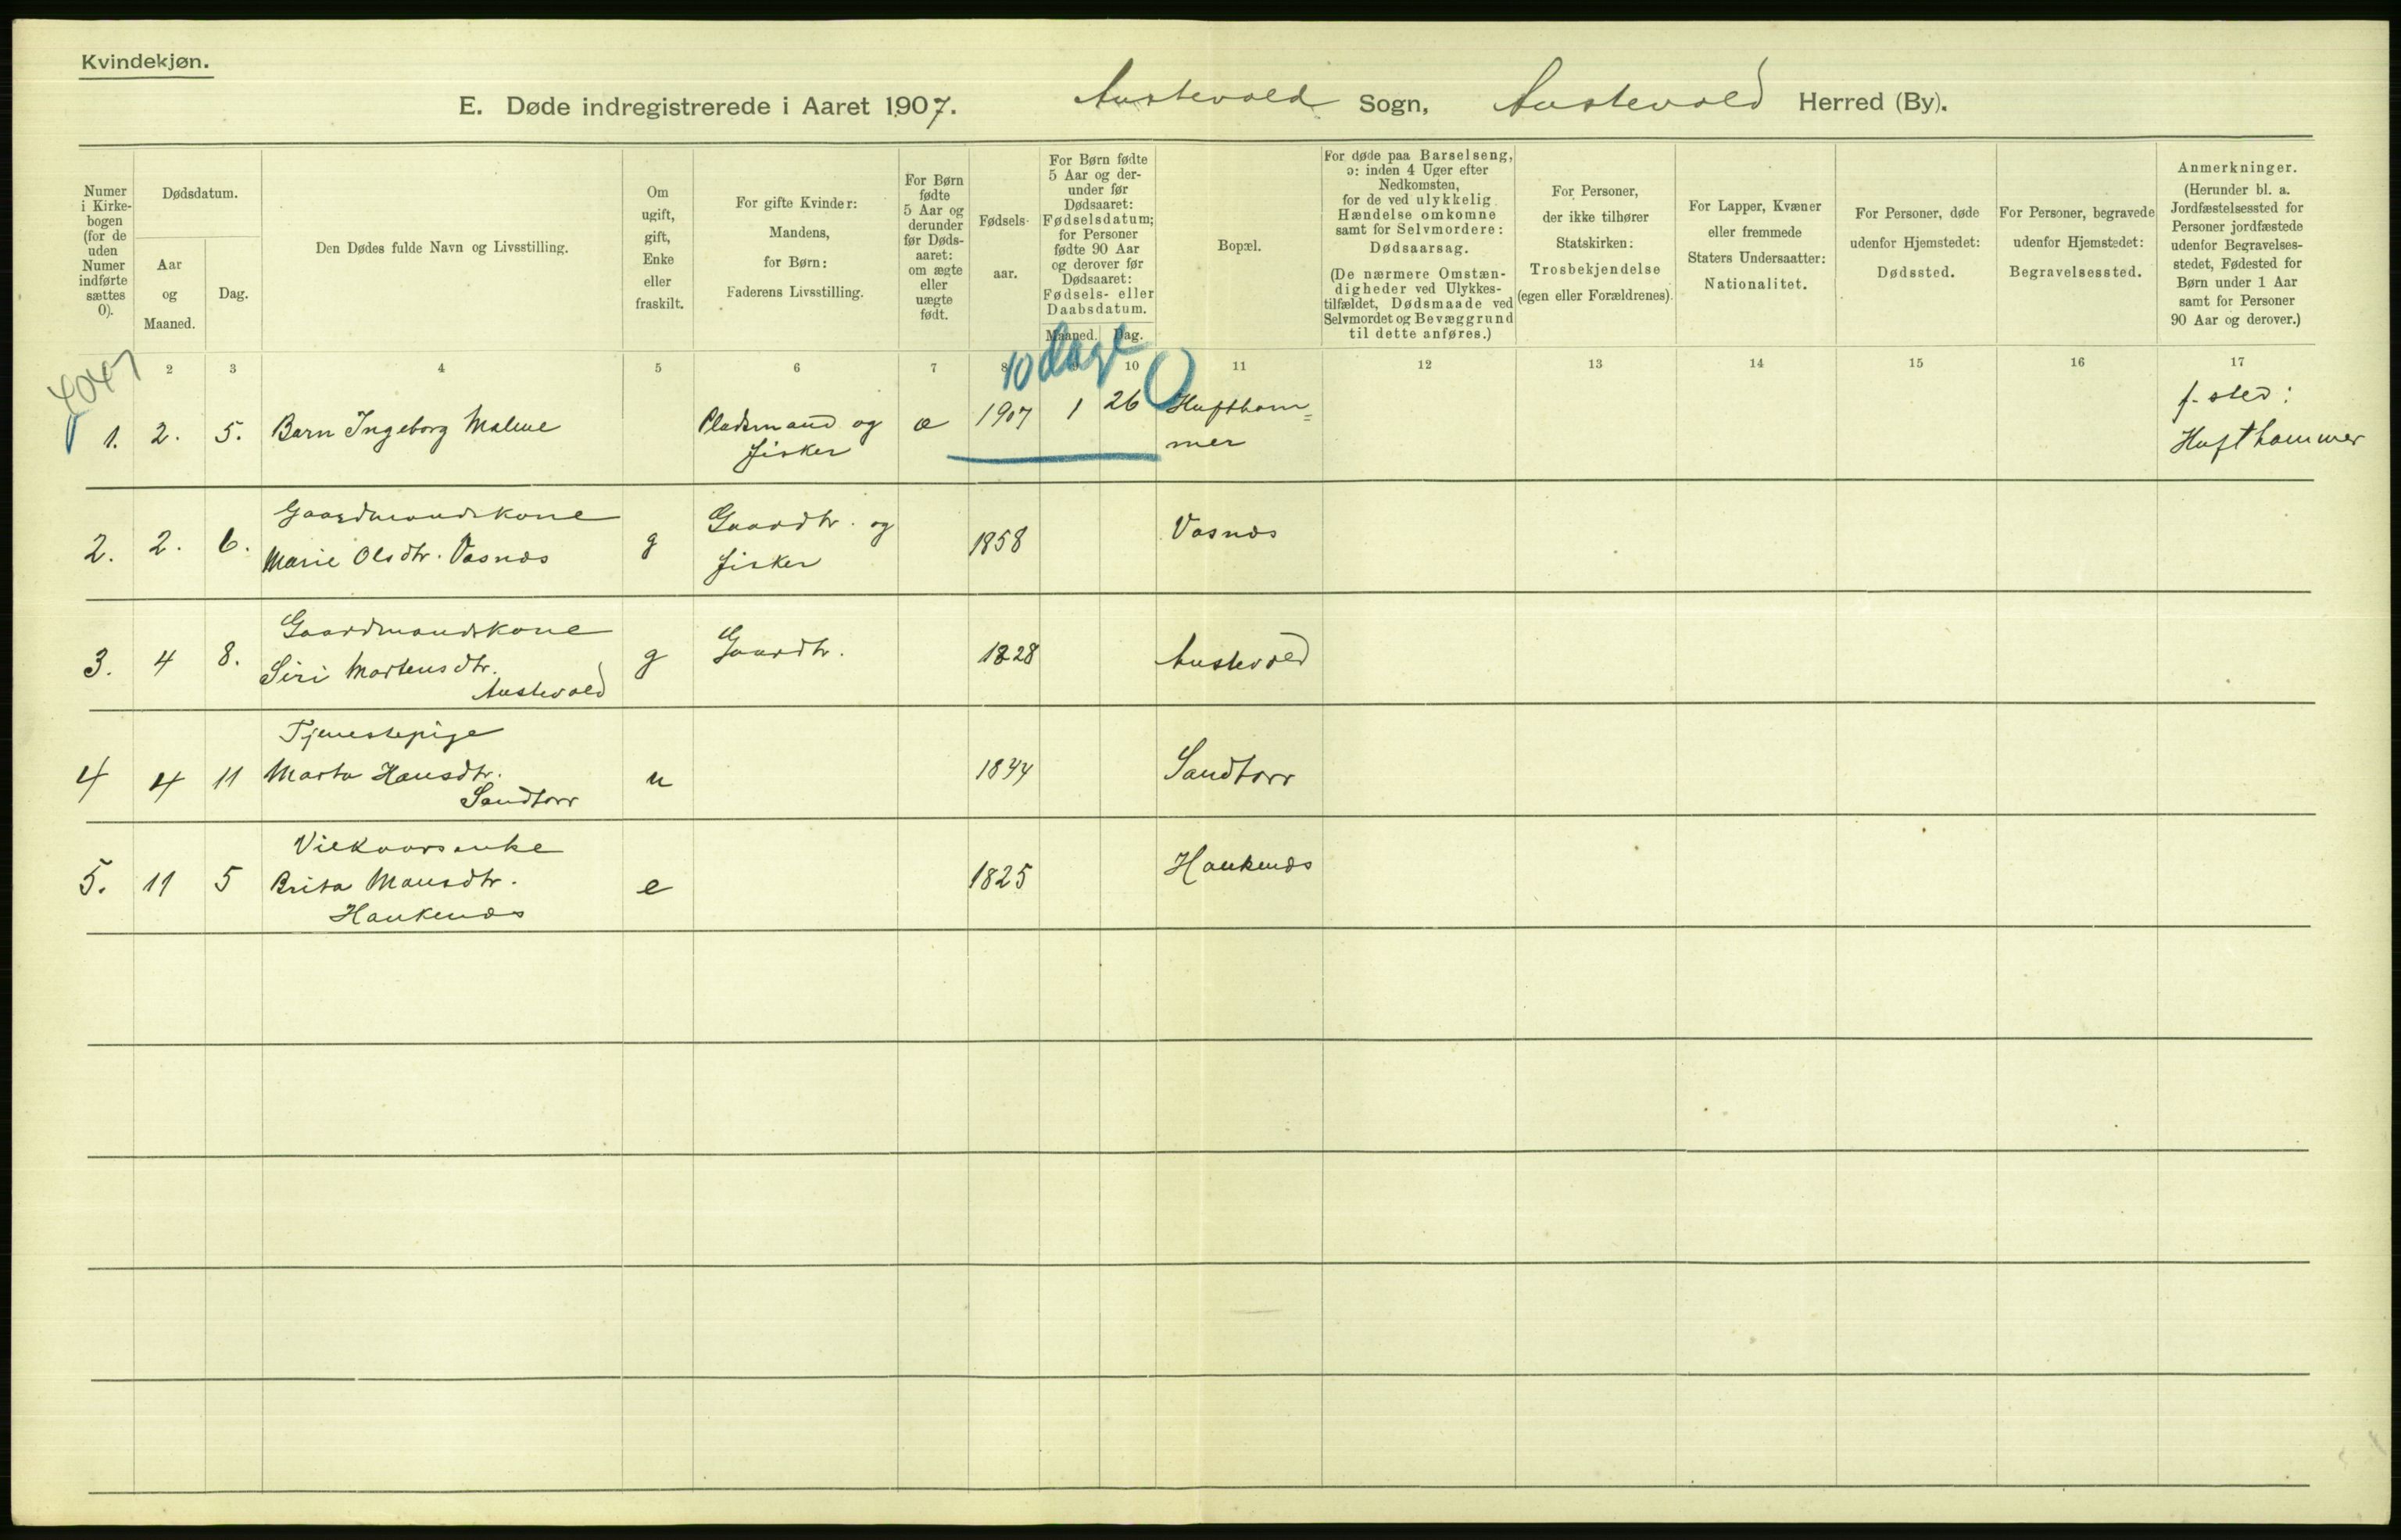 Kvindekjøn.
E. Døde indregistrerede i Aaret 1907. Austevold Sogn, Austevold Herred (By).
Numer
i Kirke-
bogen
(for de
uden
Numer
indførte
sættes
0).
Dødsdatum.
Aar
og
Maaned.
Dag.
Den Dødes fulde Navn og Livsstilling.
Om
ugift,
gift,
Enke
eller
fraskilt.
For gifte Kvinder:
Mandens,
for Børn:
Faderens Livsstilling.
For Børn
fødte
5 Aar og
derunder
før Døds-
aaret:
om ægte
eller
uægte
født.
Fødsels-
aar.
For Børn fødte
5 Aar og der-
under før
Dødsaaret:
Fødselsdatum;
for Personer
fødte 90 Aar
og derover før
Dødsaaret:
Fødsels- eller
Daabsdatum.
Maaned. Dag.
Bopæl.
For døde paa Barselseng,
ɔ: inden 4 Uger efter
Nedkomsten,
for de ved ulykkelig
Hændelse omkomne
samt for Selvmordere:
Dødsaarsag.
(De nærmere Omstæn-
digheder ved Ulykkes-
tilfældet, Dødsmaade ved
Selvmordet og Bevæggrund
til dette anføres.)
For Personer,
der ikke tilhører
Statskirken:
Trosbekjendelse
(egen eller Forældrenes).
For Lapper, Kvæner
eller fremmede
Staters Undersaatter:
Nationalitet.
For Personer, døde
udenfor Hjemstedet:
Dødssted.
For Personer, begravede
udenfor Hjemstedet:
Begravelsessted.
Anmerkninger.
(Herunder bl. a.
Jordfæstelsessted for
Personer jordfæstede
udenfor Begravelses-
stedet, Fødested for
Børn under 1 Aar
samt for Personer
90 Aar og derover.)
4047
2 3 4 5 6 7 8 9 10 11 12 13 14 15 16 17
10 dage
1. 2. 5. Barn Ingeborg Malene Pladsmand og æ 1907 1 26 Huftham= f. sted:
fisker mer Hufthammer
Gaardmandskone
2. 2. 6. Marie Olsdtr. Vasnæs g Gaardbr. og 1858 Vasnæs
fisker
Gaardmandskone
3. 4 8. Siri Mortensdtr. g Gaardbr. 1828 Austevold
Austevold
Tjenestepige
4 4 11 Marta Hansdtr. u 1844 Sandtorv
Sandtorv
Vilkaarsenke
5. 11 5 Brita Monsdtr. e 1825 Haukenæs
Haukenæs